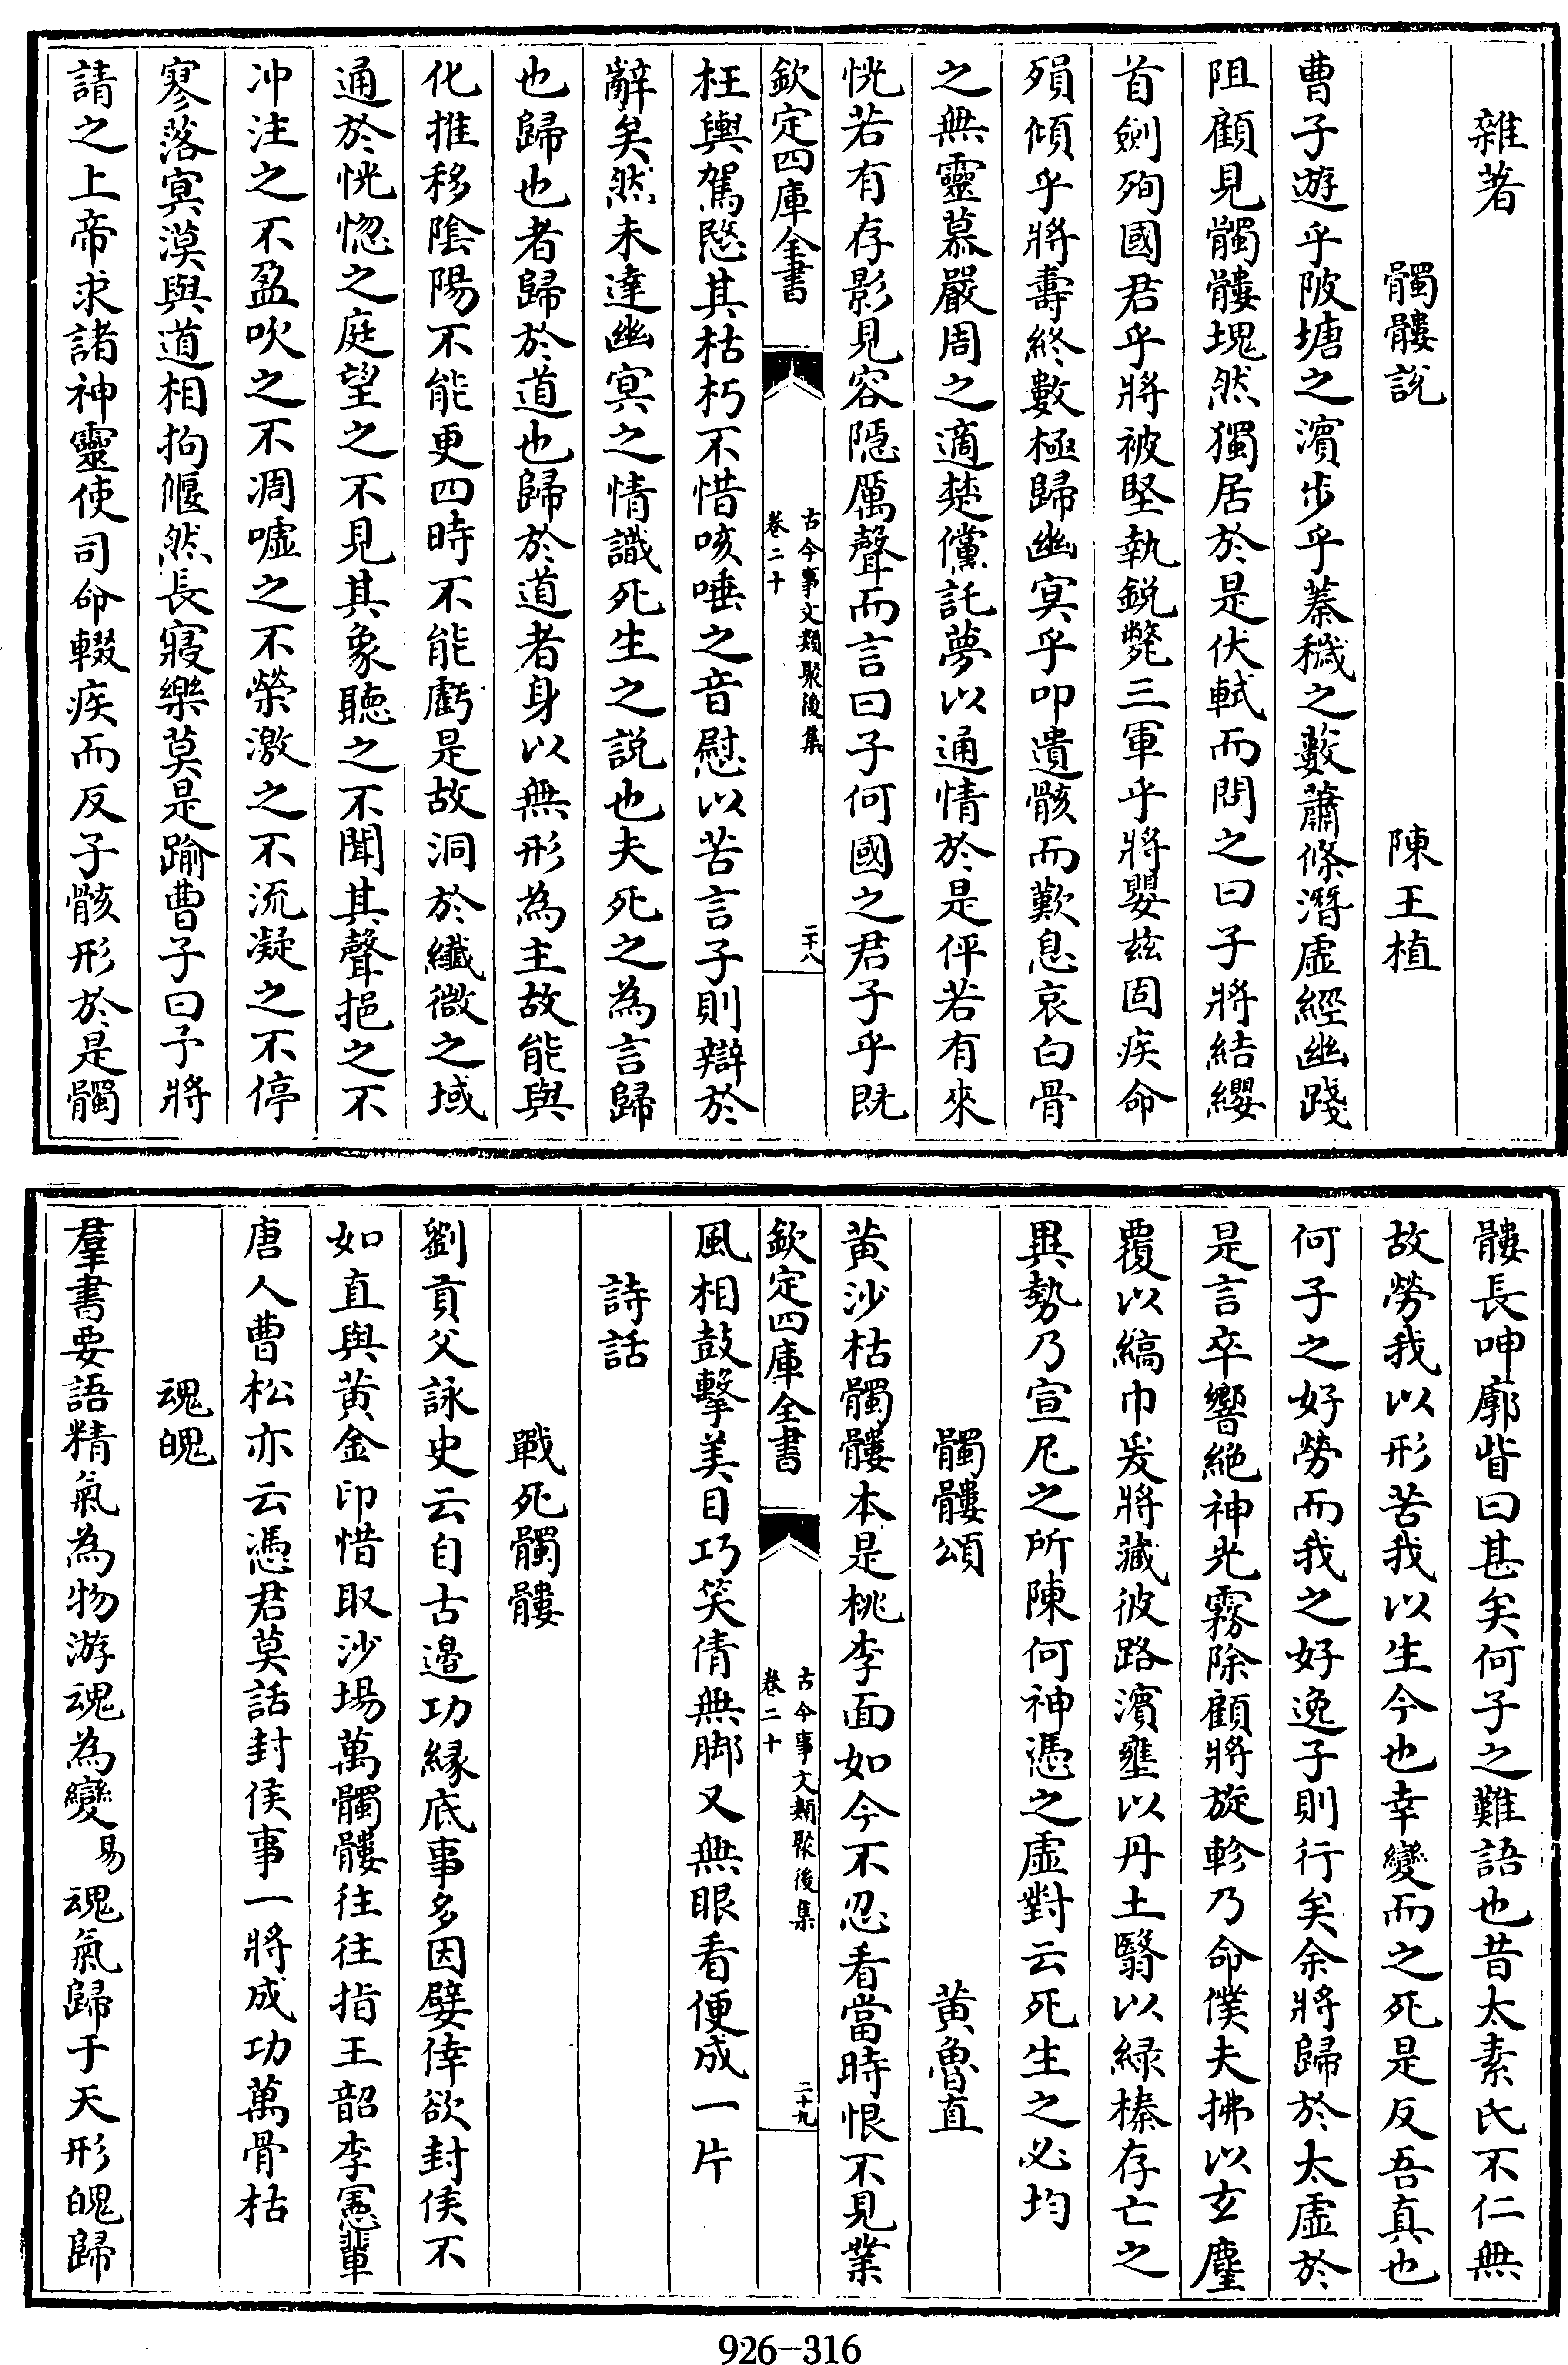 雜著
髑髏說　陳王植
曹子遊乎陂塘之濱步乎蓁穢之藪蕭條潛虛經幽踐
阻顧見髑髏塊然獨居於是伏軾而問之曰子將結纓
首劍殉國君乎將被堅執鋭斃三軍乎將嬰兹固疾命
殞傾乎將壽終數極歸幽冥乎叩遺骸而歎息哀白骨
之無靈慕嚴周之適楚儻託夢以通情於是伻若有來
恍若有存影見容隱厲聲而言曰子何國之君子乎既
欽定四庫全書
古今事文類聚後集
卷二十
二十八
枉輿駕愍其枯朽不惜咳唾之音慰以苦言子則辯於
辭矣然未達幽冥之情識死生之說也夫死之為言歸
也歸也者歸於道也歸於道者身以無形為主故能與
化推移陰陽不能更四時不能虧是故洞於纖微之域
通於恍惚之庭望之不見其象聽之不聞其聲挹之不
冲注之不盈吹之不凋噓之不榮激之不流凝之不停
寥落冥漠與道相拘偃然長寢樂莫是踰曹子曰予將
請之上帝求諸神靈使司命輟疾而反子骸形於是髑
髏長呻廓眥曰甚矣何子之難語也昔太素氏不仁無
故勞我以形苦我以生今也幸變而之死是反吾真也
何子之好勞而我之好逸子則行矣余將歸於太虛於
是言卒響絶神光霧除顧將旋軫乃命僕夫拂以玄塵
覆以縞巾爰將藏彼路濱壅以丹土翳以緑榛存亡之
異勢乃宣尼之所陳何神憑之虛對云死生之必均
髑髏頌　黄魯直
黄沙枯髑髏本是桃李面如今不忍看當時恨不見業
欽定四庫全書
古今事文類聚後集
卷二十
二十九
風相鼓擊美目巧笑倩無脚又無眼看便成一片
詩話
戰死髑髏
劉貢父詠史云自古邊功縁底事多因嬖倖欲封侯不
如直與黄金印惜取沙場萬髑髏往往指王韶李憲輩
唐人曹松亦云憑君莫話封侯事一將成功萬骨枯
魂魄
羣書要語精氣為物游魂為變易魂氣歸于天形魄歸
926-316